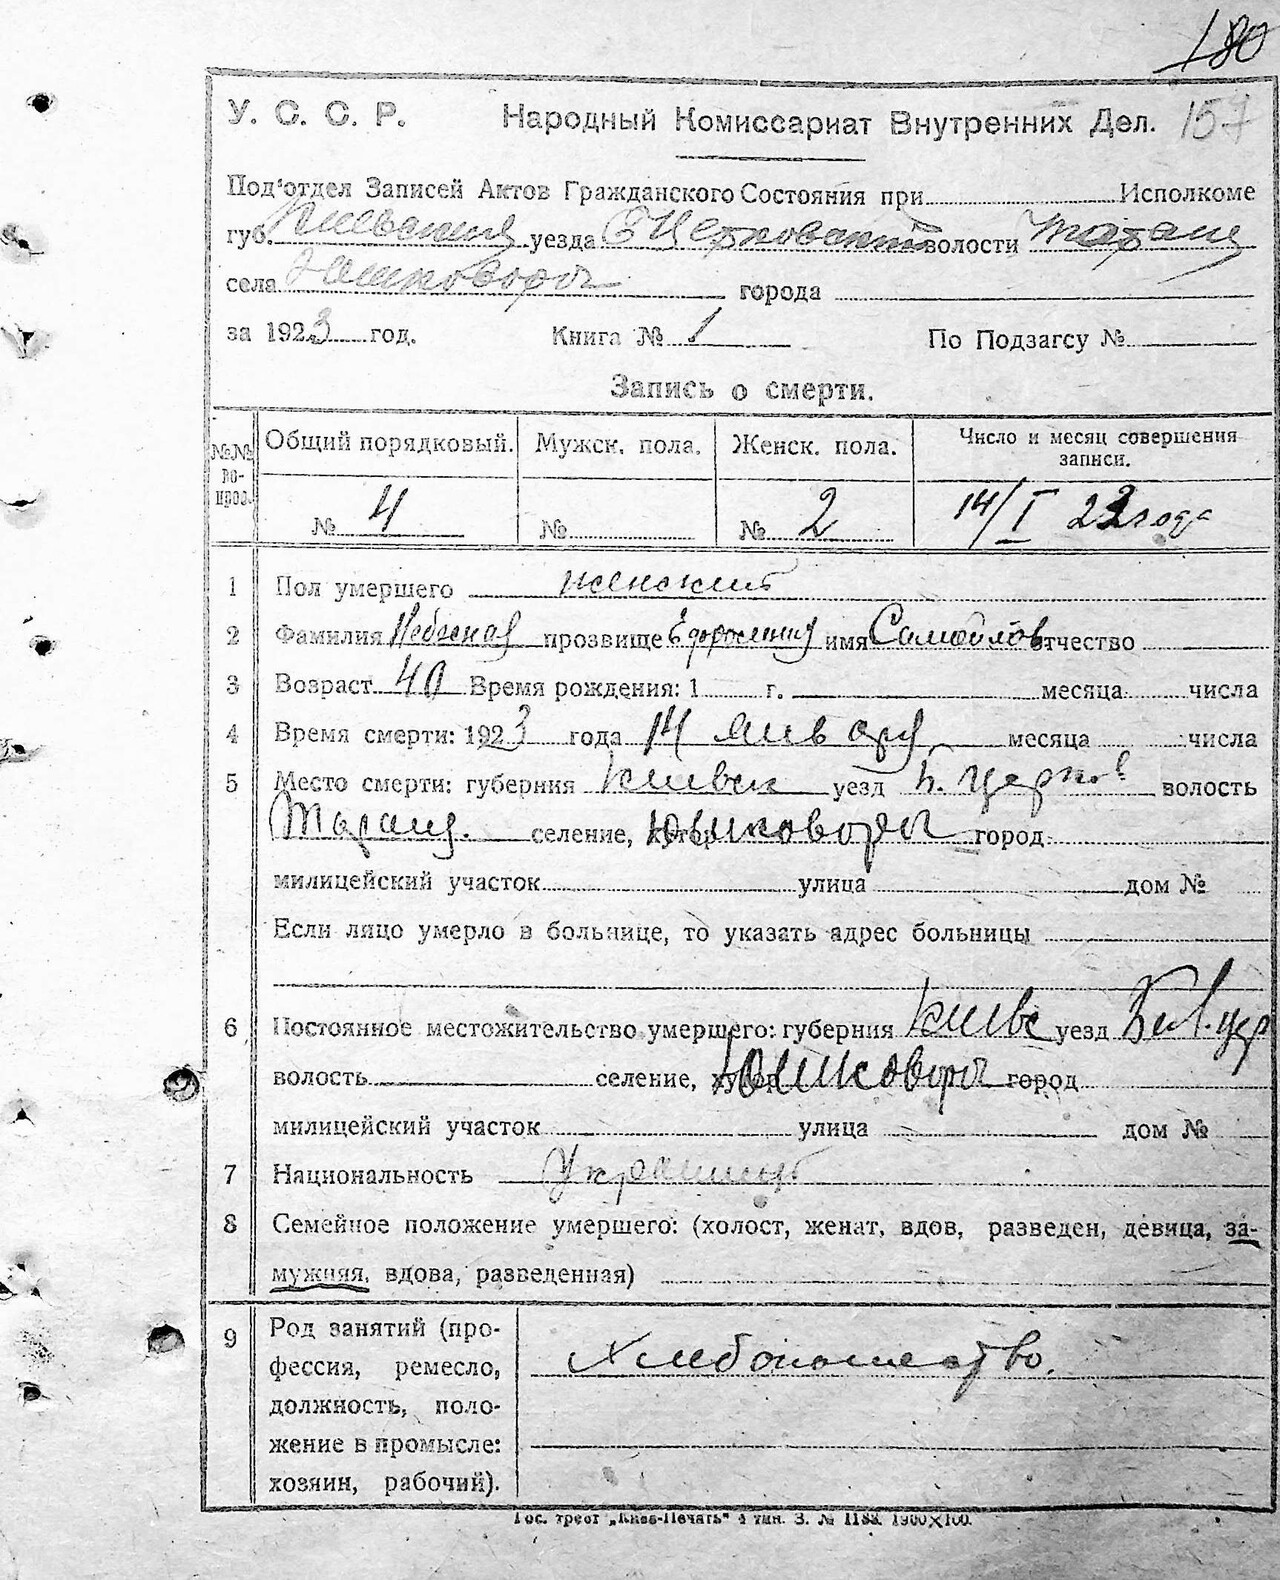 180
У. С. С. Р. Народный Комиссариат Внутренних Дел. 157
Под'отдел Записей Актов Гражданского Состояния при Исполкоме
губ. Киевский уезда БЦерковский волости Таращ
села Юшковороги города
за 1923 год. Книга № 1 По Подзагсу №
Запись о смерти.
№№ вопрос. Общий порядковый. Мужск. пола. Женск. пола. Число и месяц совершения записи.
№ 4 № № 2 14/I 23 года
1 Пол умершего женский
2 Фамилия прозвище имя Самойлов отчество
3 Возраст 40 Время рождения: 1 г. месяца числа
4 Время смерти: 1923 года 14 января месяца числа
5 Место смерти: губерния Киевск уезд Б. Церков волость
Таращ. селение, хутор Юшковороги город
милицейский участок улица дом №
Если лицо умерло в больнице, то указать адрес больницы
6 Постоянное местожительство умершего: губерния Киевс уезд Бел. цер
волость селение, хутор Юшковороги город
милицейский участок улица дом №
7 Национальность
8 Семейное положение умершего: (холост, женат, вдов, разведен, девица, за-
мужняя, вдова, разведенная)
9 Род занятий (про-
фессия, ремесло, Хлебопашество.
должность, поло-
жение в промысле:
хозяин, рабочий).
Гос. трест „Киев-Печать" 4 тип. З. № 1900×100.